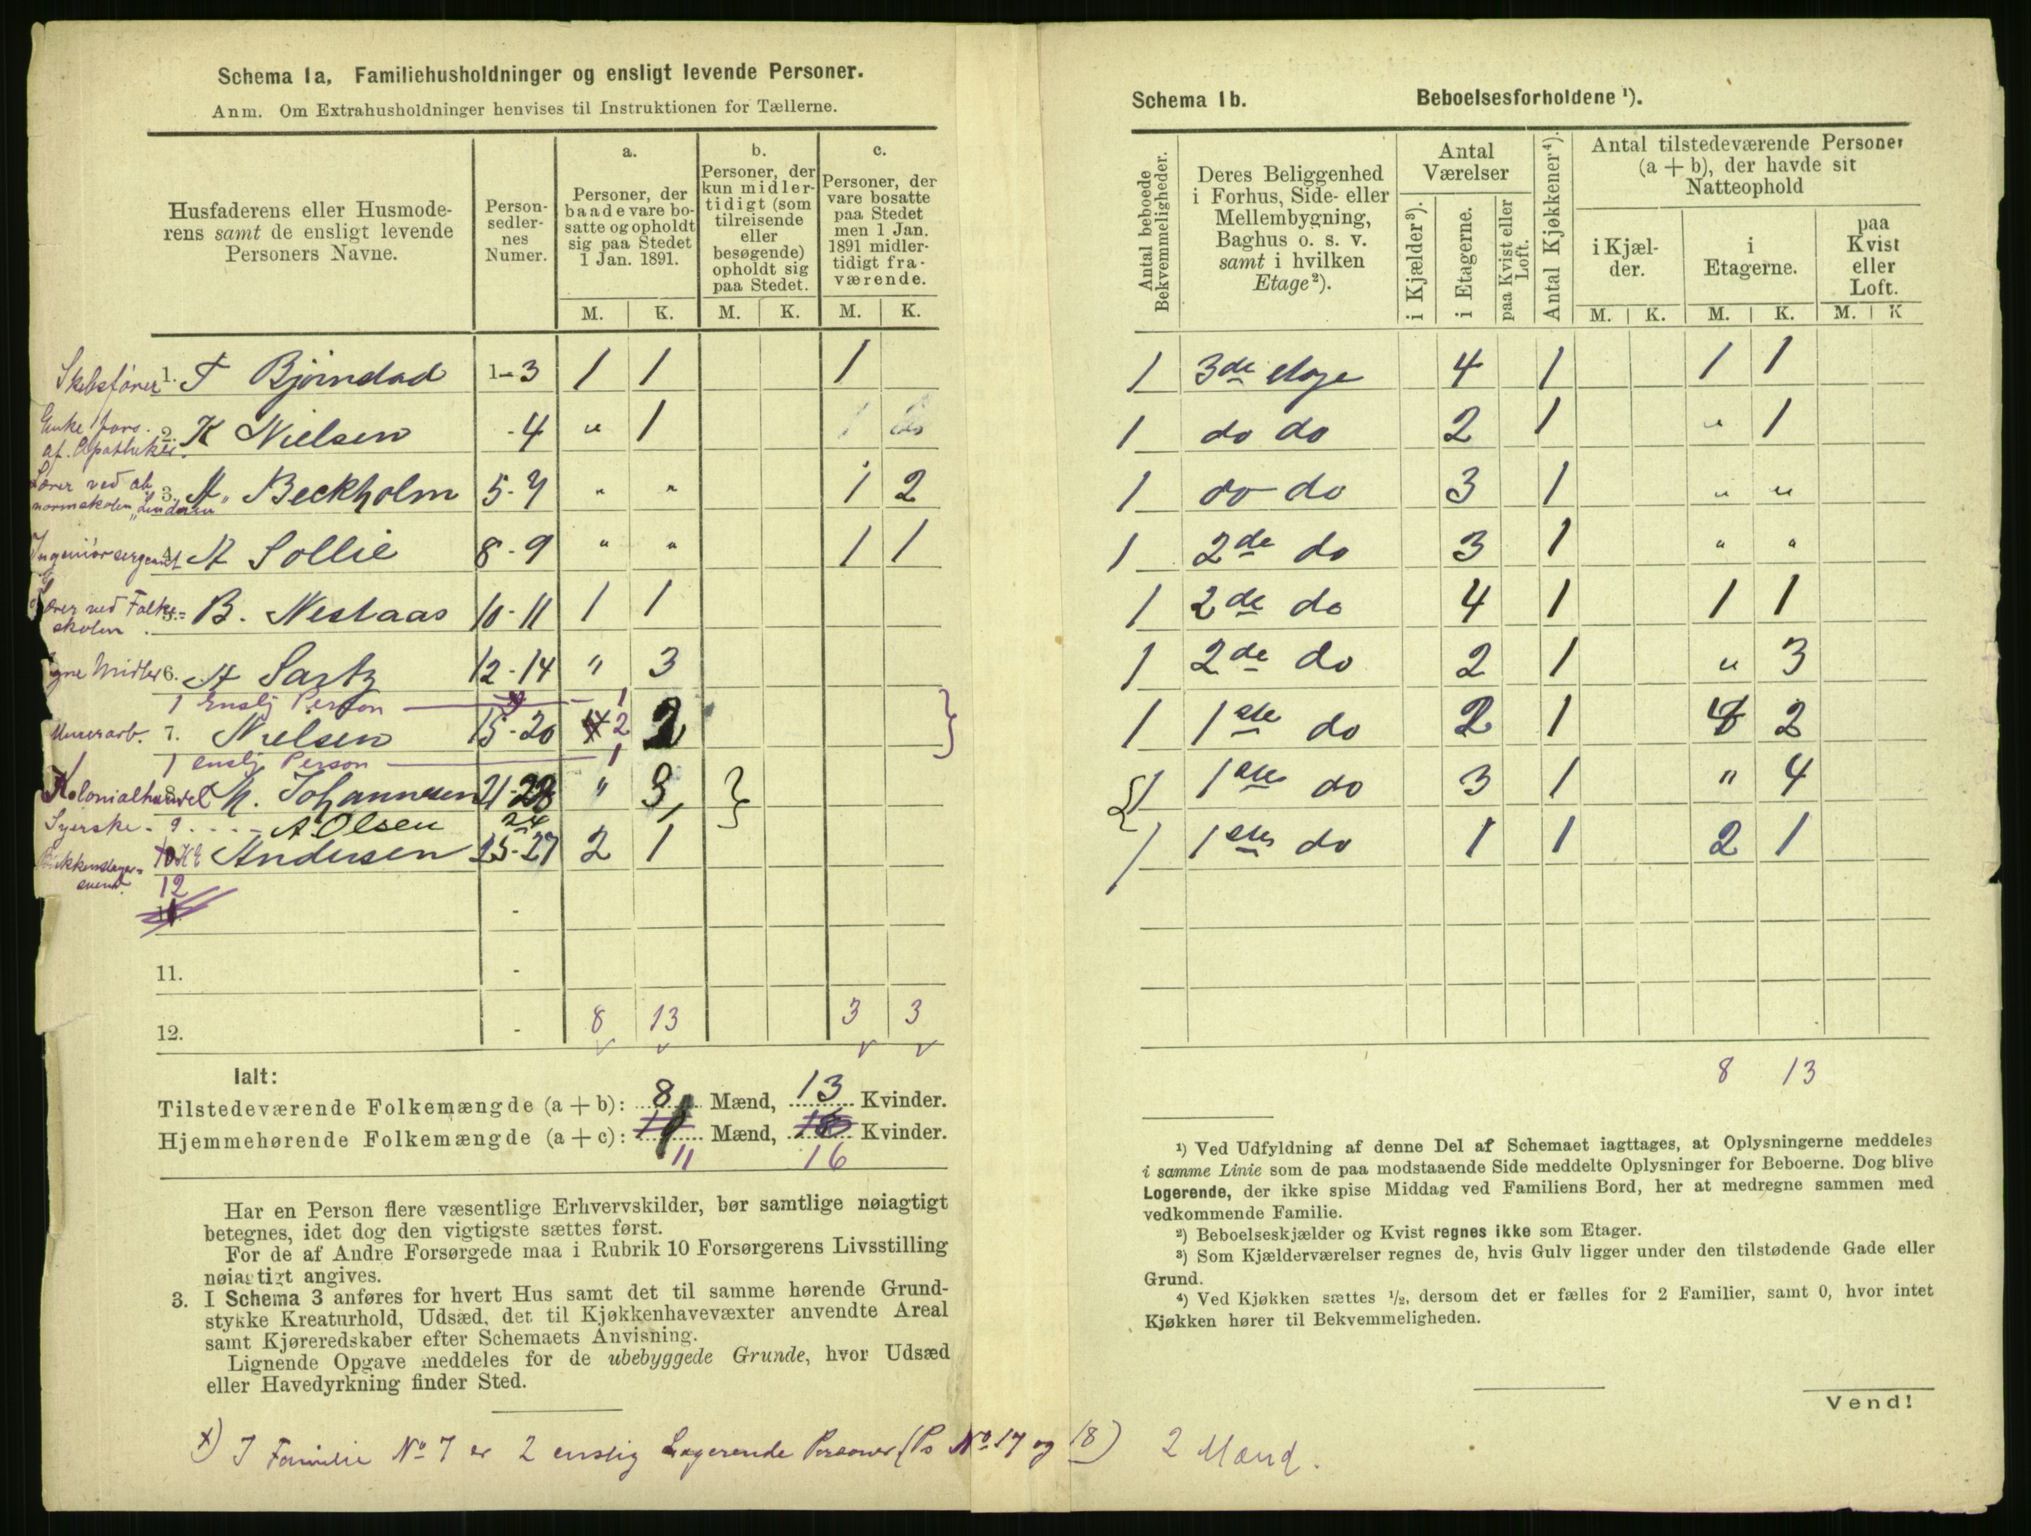 Schema 1a. Familiehusholdninger og ensligt levende Personer.
Anm. Om Extrahusholdninger henvises til Instruktionen for Tællerne.
Husfaderens eller Husmode-
rens samt de ensligt levende
Personers Navne.
Person-
sedler-
nes
Numer.
a.
Personer, der
baade vare bo-
satte og opholdt
sig paa Stedet
1 Jan. 1891.
b.
Personer, der
kun midler-
tidigt (som
tilreisende
eller
besøgende)
opholdt sig
paa Stedet.
c.
Personer, der
vare bosatte
paa Stedet
men 1 Jan.
1891 midler-
tidigt fra-
værende.
M. K. M. K. M. K.
Skibsfører 1. T Bjørndad 1-3 1 1 1
Enke fors.
af. Apotheker. 2. K Nielsen -4 " 1
Lærer ved ab
normskolen "Linderen" 3. A Beckholm 5-7 " " 1 2
Ingeniørsergeant 4. A Sollie 8-9 " " 1 1
Lærer ved Folke
skolen 5. B. Nestaas 10-11 1 1
Egne Midler 6. A Sartz 12-14 " 3
1 Enslj Person 1
Murerarb. 7. Nielsen 15-20 2 2
1 enslj Person 1
Kolonialhandel M. Johannesen 21-23 " 3
Syerske - 9 A Olsen 24
Blikkenslager-
svend. 10 Andersen 25-27 2 1
12
11. -
12. - 8 13 3 3
Ialt:
Tilstedeværende Folkemængde (a + b): 8 Mænd, 13 Kvinder.
Hjemmehørende Folkemængde (a + c): 11 Mænd, 16 Kvinder.
Har en Person flere væsentlige Erhvervskilder, bør samtlige nøiagtigt
betegnes, idet dog den vigtigste sættes først.
For de af Andre Forsørgede maa i Rubrik 10 Forsørgerens Livsstilling
nøiagtigt angives.
3. I Schema 3 anføres for hvert Hus samt det til samme hørende Grund-
stykke Kreaturhold, Udsæd, det til Kjøkkenhavevæxter anvendte Areal
samt Kjøreredskaber efter Schemaets Anvisning.
Lignende Opgave meddeles for de ubebyggede Grunde, hvor Udsæd
eller Havedyrkning finder Sted.
x) I Familie No 7 er 2 enslig Logerende Personer (Ps No 17 og 18) 2 Mænd.
Schema 1b. Beboelsesforholdene ¹).
Antal beboede
Bekvemmeligheder.
Deres Beliggenhed
i Forhus, Side- eller
Mellembygning,
Baghus o. s. v.
samt i hvilken
Etage ²).
Antal
Værelser
i Kjælder ³).
i Etagerne.
paa Kvist eller
Loft.
Antal Kjøkkener ⁴).
Antal tilstedeværende Personer
(a + b), der havde sit
Natteophold
i Kjæl-
der.
i
Etagerne.
paa
Kvist
eller
Loft.
M. K. M. K. M. K
1 3de etage 4 1 1 1
1 do do 2 1 " 1
1 do do 3 1 " "
1 2de do 3 1 " "
1 2de do 4 1 1 1
1 2de do 2 1 " 3
1 1ste do 2 1 2
1 1ste do 3 1 " 4
1 1ste do 1 1 2 1
8 13
¹) Ved Udfyldning af denne Del af Schemaet iagttages, at Oplysningerne meddeles
i samme Linie som de paa modstaaende Side meddelte Oplysninger for Beboerne. Dog blive
Logerende, der ikke spise Middag ved Familiens Bord, her at medregne sammen med
vedkommende Familie.
²) Beboelseskjælder og Kvist regnes ikke som Etager.
³) Som Kjælderværelser regnes de, hvis Gulv ligger under den tilstødende Gade eller
Grund.
⁴) Ved Kjøkken sættes ½, dersom det er fælles for 2 Familier, samt 0, hvor intet
Kjøkken hører til Bekvemmeligheden.
Vend!